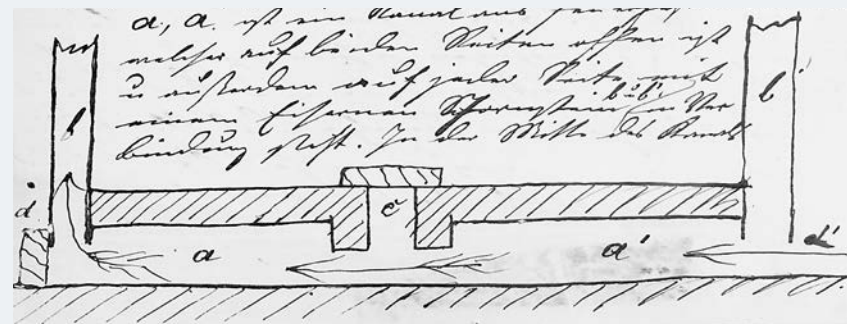 a, a. ist ein Kanal aus
welcher auf beiden Seiten offen ist
u außerdem auf jeder Seite mit
einem Eisernen Schornstein b u b' in Ver
bindung steht. In der Mitte des Kanals
b
b
d
c
a
a'
d'